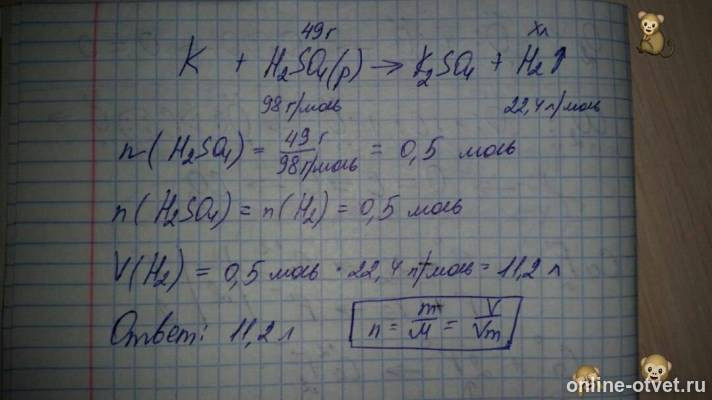 49 г Xл
K + H₂SO₄(р) → K₂SO₄ + H₂↑
98 г/моль 22,4 л/моль
n(H₂SO₄) = 49 г / 98 г/моль = 0,5 моль
n(H₂SO₄) = n(H₂) = 0,5 моль
V(H₂) = 0,5 моль · 22,4 л/моль = 11,2 л
Ответ: 11,2 л
n = m/M = V/Vm
online-otvet.ru